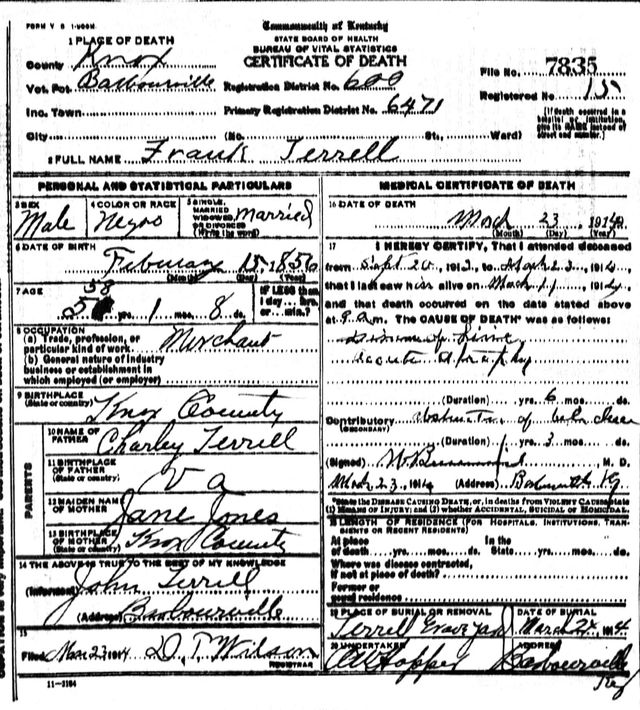 FORM V S 1-MOSM.
Commonwealth of Kentucky
STATE BOARD OF HEALTH
BUREAU OF VITAL STATISTICS
CERTIFICATE OF DEATH
1 PLACE OF DEATH
County Knox
Vot. Pct. Barbourville Registration District No. 600
File No. 7835
Inc. Town Primary Registration District No. 6471
Registered No.
City (No. St., Ward)
(If death occurred in a hospital or institution, give its NAME instead of street and number.)
2 FULL NAME Frank Terrell
PERSONAL AND STATISTICAL PARTICULARS
3 SEX Male
4 COLOR OR RACE Negro
5 SINGLE, MARRIED WIDOWED, OR DIVORCED (Write the word) Married
6 DATE OF BIRTH
February 15, 1856
(Month) (Day) (Year)
7 AGE
58 yrs. 1 mos. 8 ds.
IF LESS than 1 day ... hrs. or ... min.?
8 OCCUPATION
(a) Trade, profession, or particular kind of work Merchant
(b) General nature of Industry business or establishment in which employed (or employer)
9 BIRTHPLACE
(State or country) Knox County
PARENTS
10 NAME OF FATHER Charley Terrell
11 BIRTHPLACE OF FATHER (State or country) Va
12 MAIDEN NAME OF MOTHER Jane Jones
13 BIRTHPLACE OF MOTHER (State or country) Knox County
14 THE ABOVE IS TRUE TO THE BEST OF MY KNOWLEDGE
(Informant) John Terrell
(Address) Barbourville
15
Filed Mar 23 1914 D. T. Wilson
REGISTRAR
11-3184
MEDICAL CERTIFICATE OF DEATH
16 DATE OF DEATH
March 23, 1914
(Month) (Day) (Year)
17 I HEREBY CERTIFY, That I attended deceased
from Sept 20, 1913, to March 23, 1914,
that I last saw him alive on March 11, 1914,
and that death occurred on the date stated above
at 9 a.m. The CAUSE OF DEATH* was as follows:
(Duration) yrs. 6 mos. ds.
Contributory
(SECONDARY)
(Duration) 1 yrs. 3 mos. ds.
(Signed) M. D.
March 23, 1914 (Address) Barbourville Ky
*State the DISEASE CAUSING DEATH, or, in deaths from VIOLENT CAUSES state (1) MEANS OF INJURY; and (2) whether ACCIDENTAL, SUICIDAL or HOMICIDAL.
18 LENGTH OF RESIDENCE (FOR HOSPITALS, INSTITUTIONS, TRANSIENTS OR RECENT RESIDENTS)
At place of death yrs. mos. ds. In the State yrs. mos. ds.
Where was disease contracted, if not at place of death?
Former or usual residence
19 PLACE OF BURIAL OR REMOVAL
Terrell Grave Yard
DATE OF BURIAL
March 24, 1914
20 UNDERTAKER
Hopper
ADDRESS
Barbourville
Ky